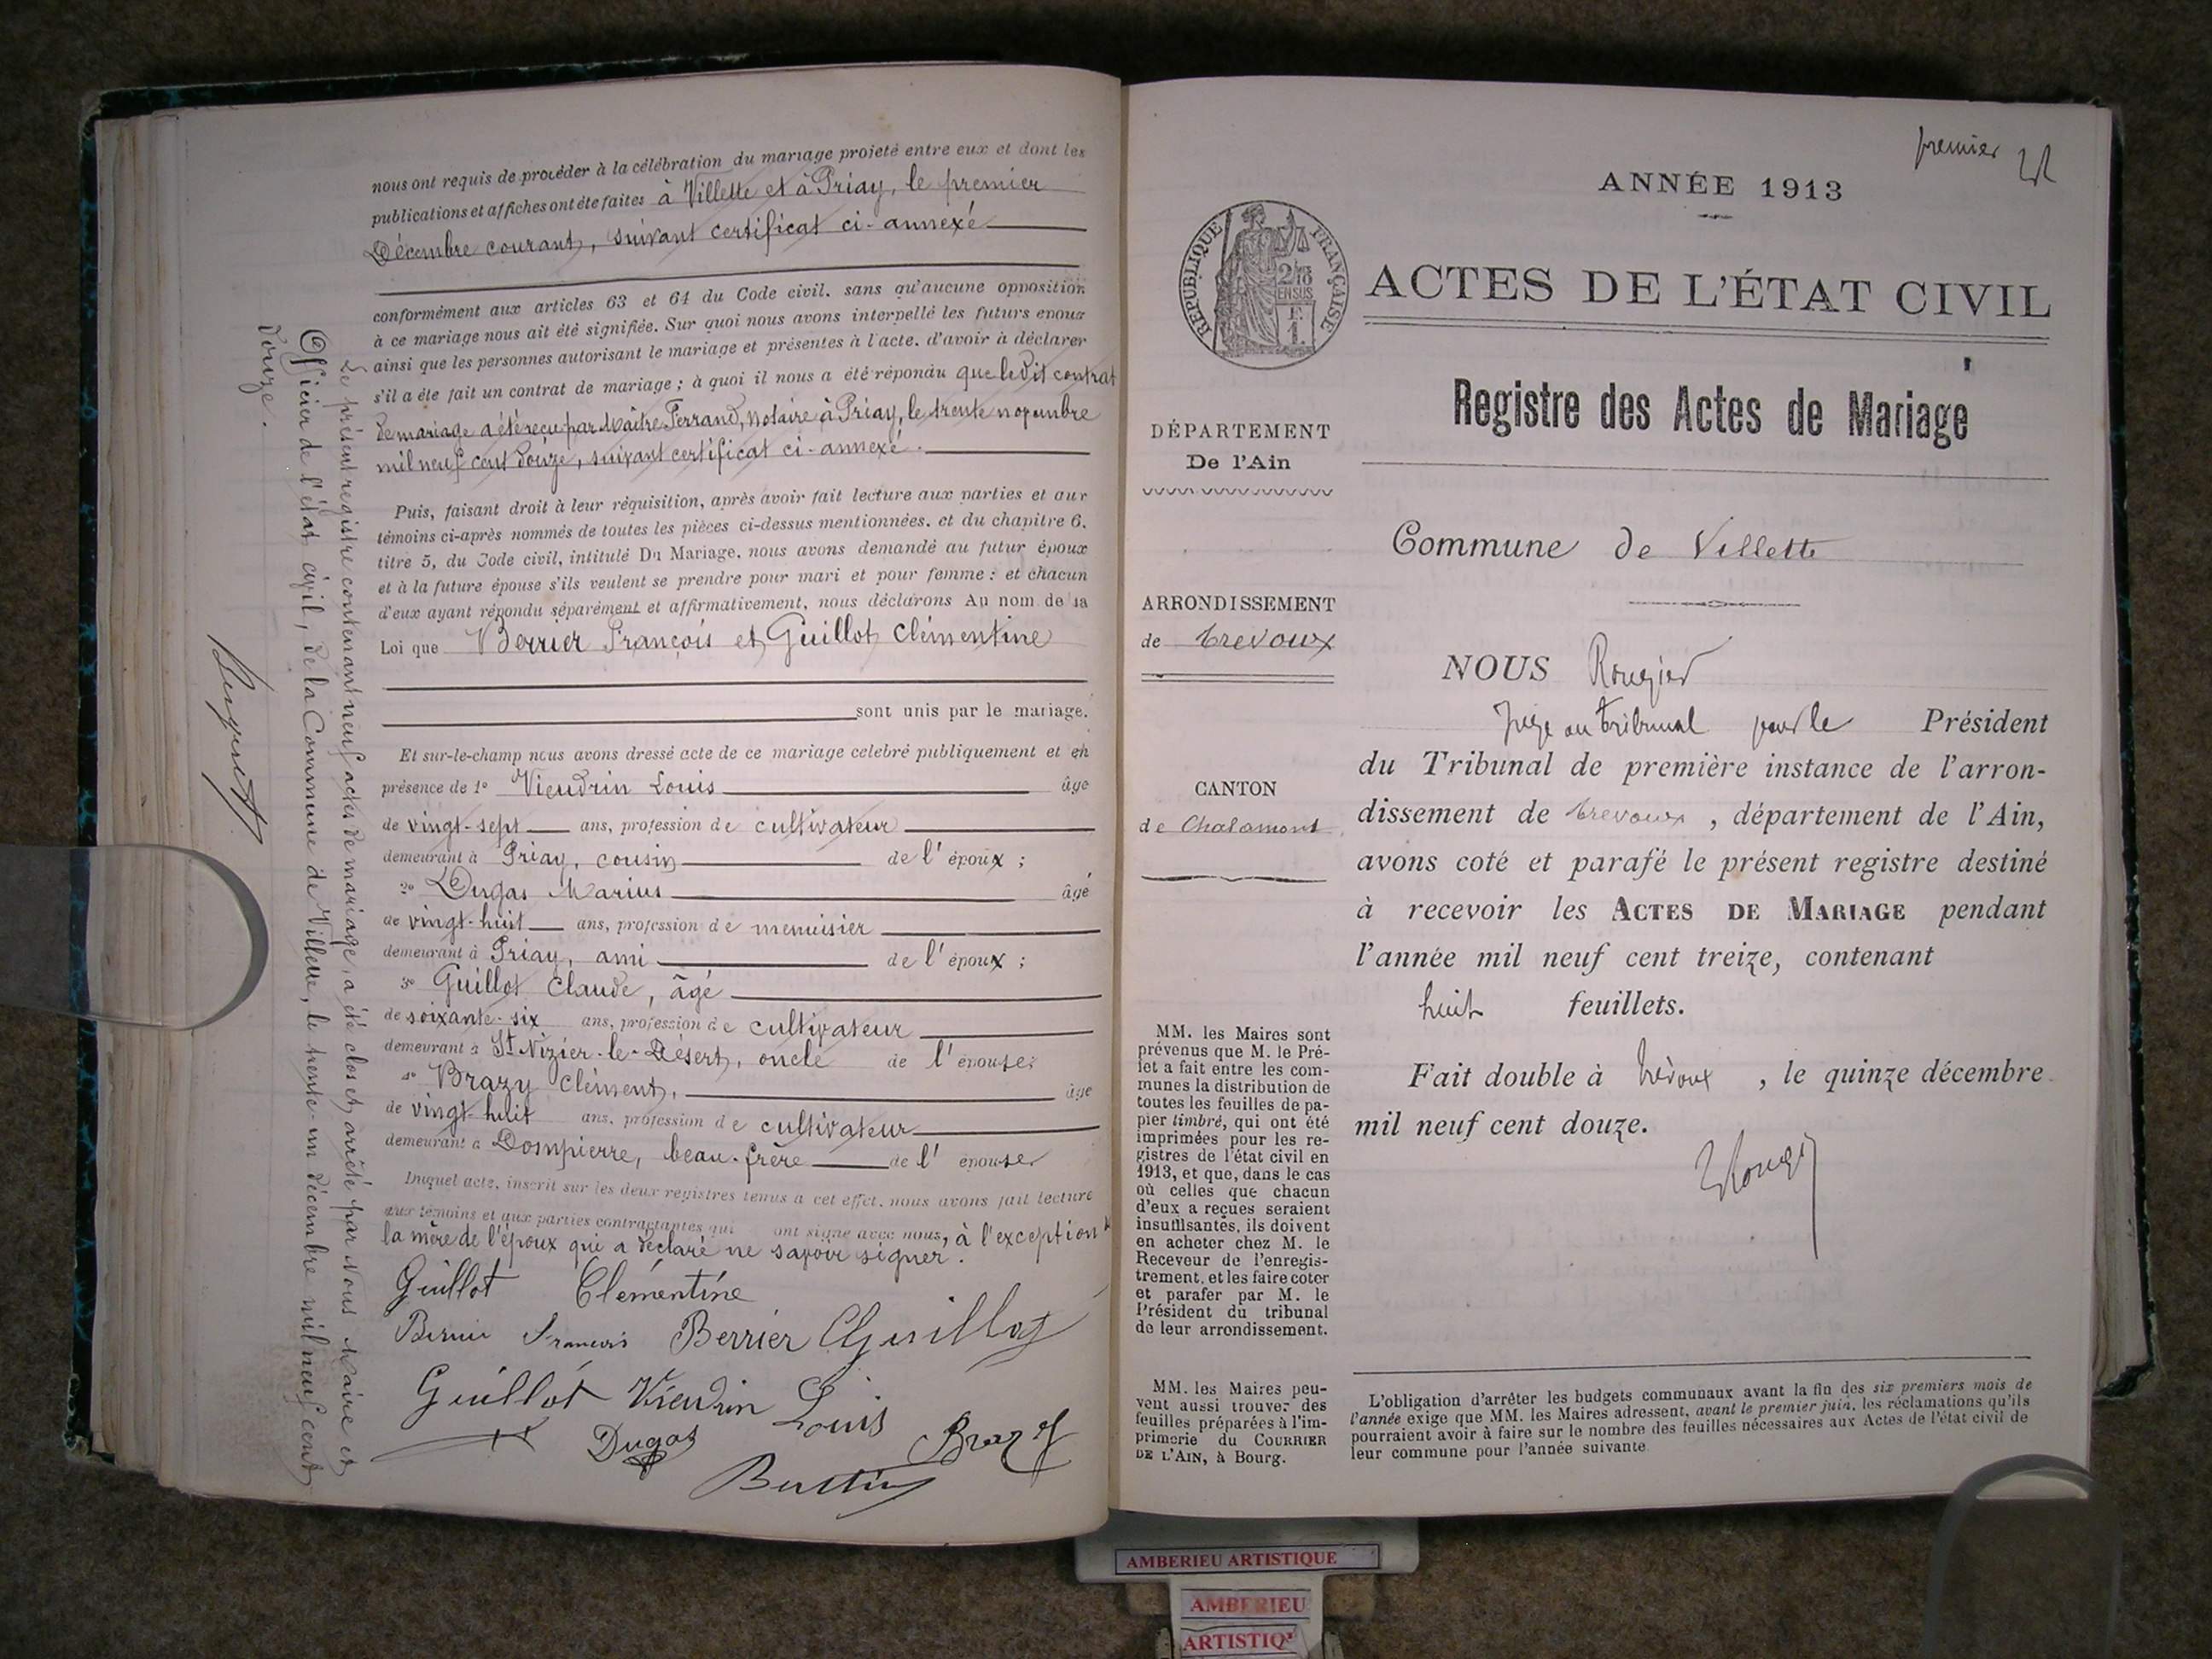 nous ont requis de procéder à la célébration du mariage projeté entre eux et dont les
publications et affiches ont été faites à Villette et à Priay, le premier
Décembre courant, suivant certificat ci-annexé
conformément aux articles 63 et 64 du Code civil, sans qu'aucune opposition
à ce mariage nous ait été signifiée. Sur quoi nous avons interpellé les futurs époux
ainsi que les personnes autorisant le mariage et présentes à l'acte, d'avoir à déclarer
s'il a été fait un contrat de mariage ; à quoi il nous a été répondu que ledit contrat
de mariage a été reçu par Maître Ferrand, Notaire à Priay, le trente novembre
mil neuf cent douze, suivant certificat ci-annexé.
Puis, faisant droit à leur réquisition, après avoir fait lecture aux parties et aux
témoins ci-après nommés de toutes les pièces ci-dessus mentionnées, et du chapitre 6,
titre 5, du Code civil, intitulé Du Mariage, nous avons demandé au futur époux
et à la future épouse s'ils veulent se prendre pour mari et pour femme : et chacun
d'eux ayant répondu séparément et affirmativement, nous déclarons Au nom de la
Loi que Berrier François et Guillot Clémentine
sont unis par le mariage.
Et sur-le-champ nous avons dressé acte de ce mariage célébré publiquement et en
présence de 1º Vieudrin Louis âgé
de vingt-sept ans, profession de cultivateur
demeurant à Priay, cousin de l'époux ;
2º Dugas Marius âgé
de vingt-huit ans, profession de menuisier
demeurant à Priay, ami de l'époux ;
3º Guillot Claude, âgé
de soixante-six ans, profession de cultivateur
demeurant à St Nizier-le-Désert, oncle de l'épouse;
4º Brazy Clément, âgé
de vingt-huit ans, profession de cultivateur
demeurant à Dompierre, beau-frère de l'épouse
Duquel acte, inscrit sur les deux registres tenus à cet effet, nous avons fait lecture
aux témoins et aux parties contractantes qui ont signé avec nous, à l'exception de
la mère de l'époux qui a déclaré ne savoir signer.
Guillot Clémentine
Berrier François Berrier CGuillot
Guillot Vieudrin Louis
Dugas Brazy
Le présent registre contenant neuf actes de mariage, a été clos et arrêté par Nous Maire et
Officier de l'état civil, de la Commune de Villette, le trente-un décembre mil neuf cent
douze.
premier
ANNÉE 1913
RÉPUBLIQUE FRANÇAISE
2/10 EN SUS
F.
1.
ACTES DE L'ÉTAT CIVIL
Registre des Actes de Mariage
DÉPARTEMENT
De l'Ain
Commune de Villette
ARRONDISSEMENT
de Trévoux
CANTON
de Chalamont
NOUS Rougier
Juge au tribunal pour le Président
du Tribunal de première instance de l'arron-
dissement de Trévoux, département de l'Ain,
avons coté et parafé le présent registre destiné
à recevoir les ACTES DE MARIAGE pendant
l'année mil neuf cent treize, contenant
huit feuillets.
Fait double à Trévoux, le quinze décembre
mil neuf cent douze.
Rougier
MM. les Maires sont
prévenus que M. le Pré-
fet a fait entre les com-
munes la distribution de
toutes les feuilles de pa-
pier timbré, qui ont été
imprimées pour les re-
gistres de l'état civil en
1913, et que, dans le cas
où celles que chacun
d'eux a reçues seraient
insuffisantes, ils doivent
en acheter chez M. le
Receveur de l'enregis-
trement, et les faire coter
et parafer par M. le
Président du tribunal
de leur arrondissement.
MM. les Maires peu-
vent aussi trouver des
feuilles préparées à l'im-
primerie du COURRIER
DE L'AIN, à Bourg.
L'obligation d'arrêter les budgets communaux avant la fin des six premiers mois de
l'année exige que MM. les Maires adressent, avant le premier juin, les réclamations qu'ils
pourraient avoir à faire sur le nombre des feuilles nécessaires aux Actes de l'état civil de
leur commune pour l'année suivante.
AMBERIEU ARTISTIQUE
AMBERIEU
ARTISTIQ